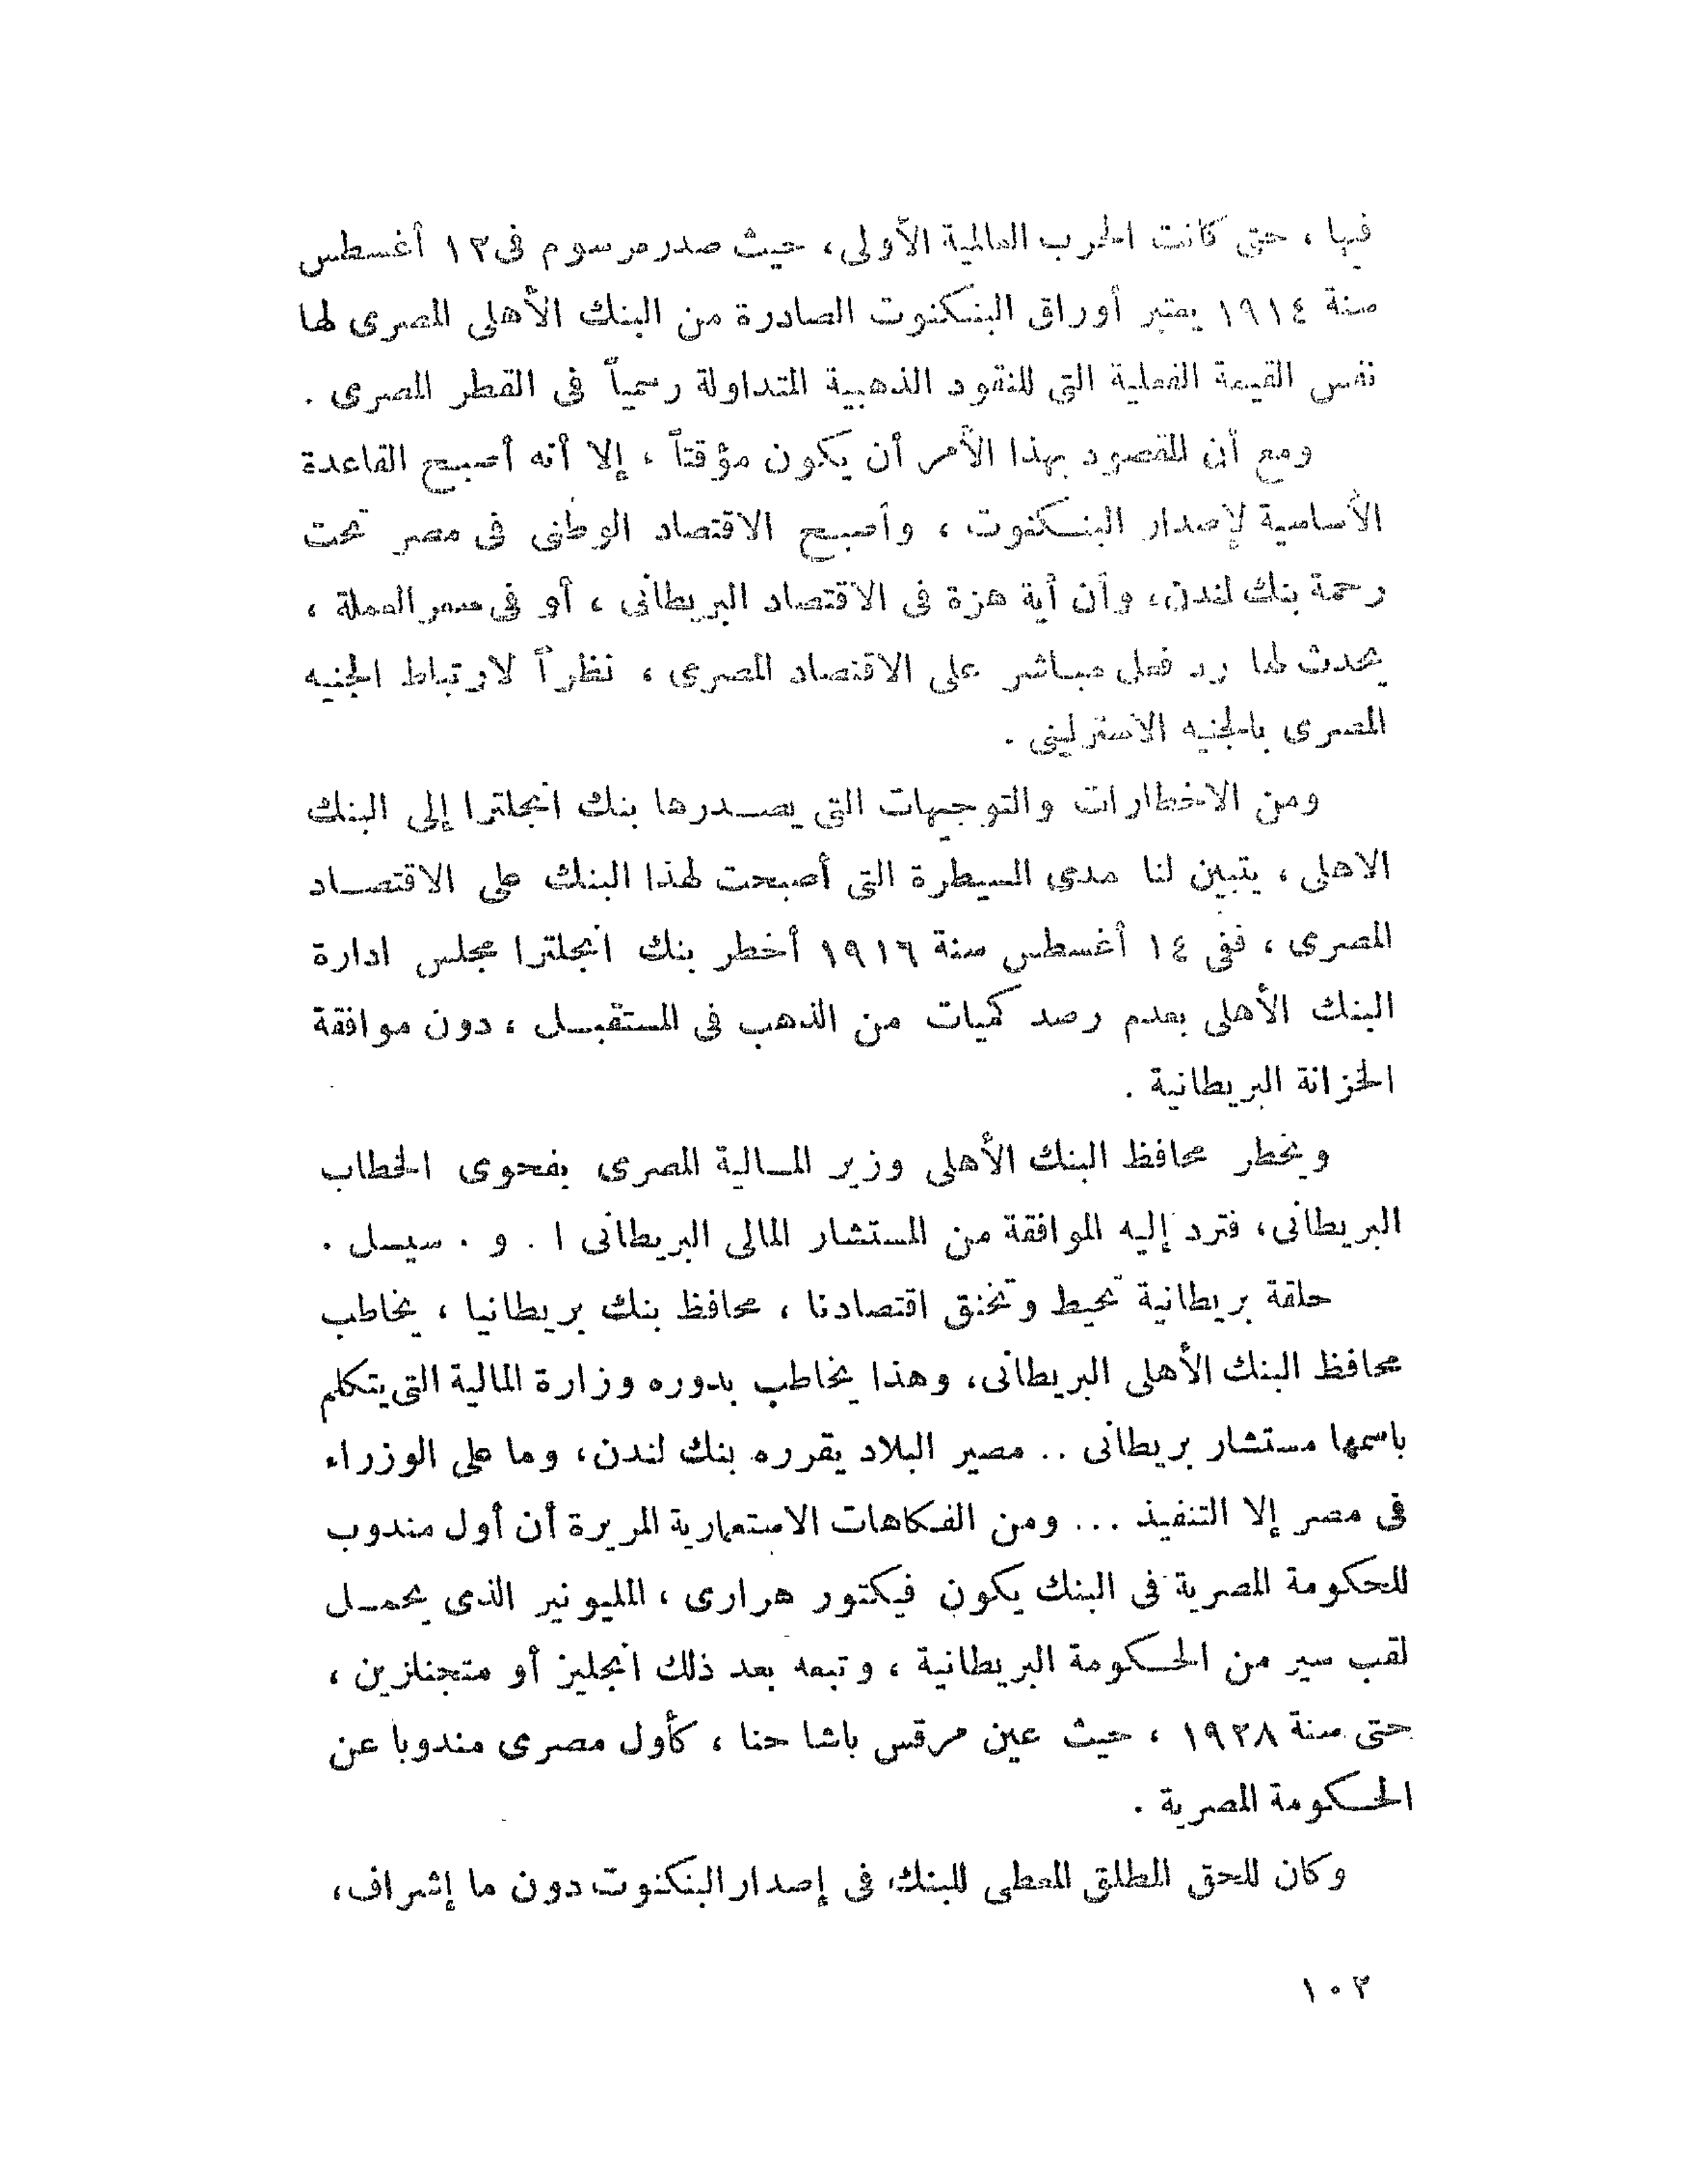 فيها ، حتى كانت الحرب العالمية الأولى، حيث صدر مرسوم فى ١٢ أغسطس
سنة ١٩١٤ يعتبر أوراق البنكنوت الصادرة من البنك الأهلى المصرى لها
نفس القيمة الفعلية التى للنقود الذهبية المتداولة رسمياً فى القطر المصرى .
ومع أن المقصود بهذا الأمر أن يكون مؤقتاً ، إلا أنه أصبح القاعدة
الأساسية لإصدار البنكنوت ، وأصبح الاقتصاد الوطنى فى مصر تحت
رحمة بنك لندن، وأن أية هزة فى الاقتصاد البريطانى ، أو فى سعر العملة ،
يحدث لها رد فعل مباشر على الاقتصاد المصرى ، نظراً لارتباط الجنيه
المصرى بالجنيه الاسترلينى .
ومن الاخطارات والتوجيهات التى يصدرها بنك انجلترا إلى البنك
الاهلى ، يتبين لنا مدى السيطرة التى أصبحت لهذا البنك على الاقتصاد
المصرى ، ففى ١٤ أغسطس سنة ١٩١٦ أخطر بنك انجلترا مجلس ادارة
البنك الأهلى بعدم رصد كميات من الذهب فى المستقبل ، دون موافقة
الخزانة البريطانية .
ويخطر محافظ البنك الأهلى وزير المالية المصرى بفحوى الخطاب
البريطانى، فترد إليه الموافقة من المستشار المالى البريطانى ا . و . سيسل .
حلقة بريطانية تحيط وتخنق اقتصادنا ، محافظ بنك بريطانيا ، يخاطب
محافظ البنك الأهلى البريطانى، وهذا يخاطب بدوره وزارة المالية التى يتكلم
باسمها مستشار بريطانى .. مصير البلاد يقرره بنك لندن، وما على الوزراء
فى مصر إلا التنفيذ ... ومن الفكاهات الاستعمارية المريرة أن أول مندوب
للحكومة المصرية فى البنك يكون فيكتور هرارى ، المليونير الذى يحمل
لقب سير من الحكومة البريطانية ، وتبعه بعد ذلك انجليز أو متجنلزين ،
حتى سنة ١٩٢٨ ، حيث عين مرقس باشا حنا ، كأول مصرى مندوبا عن
الحكومة المصرية .
وكان للحق المطلق المعطى للبنك فى إصدار البنكنوت دون ما إشراف،
١٠٢